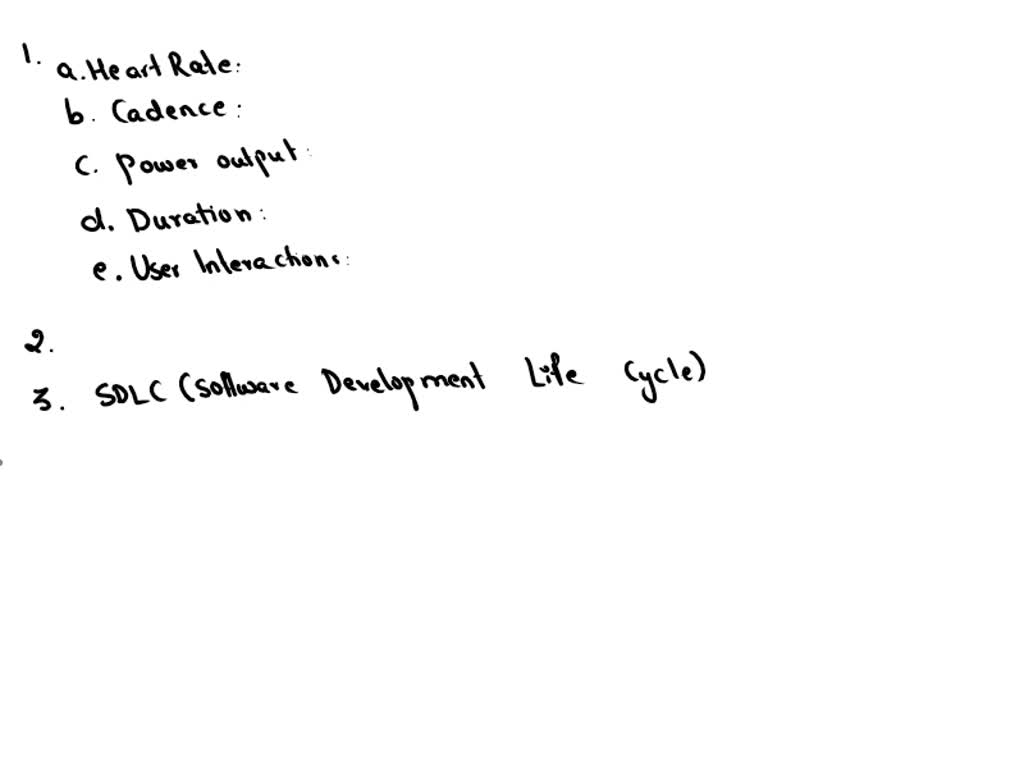 1.
a. Heart Rate:
b. Cadence:
c. Power output:
d. Duration:
e. User Interactions:
2.
3. SDLC (Software Development Life Cycle)